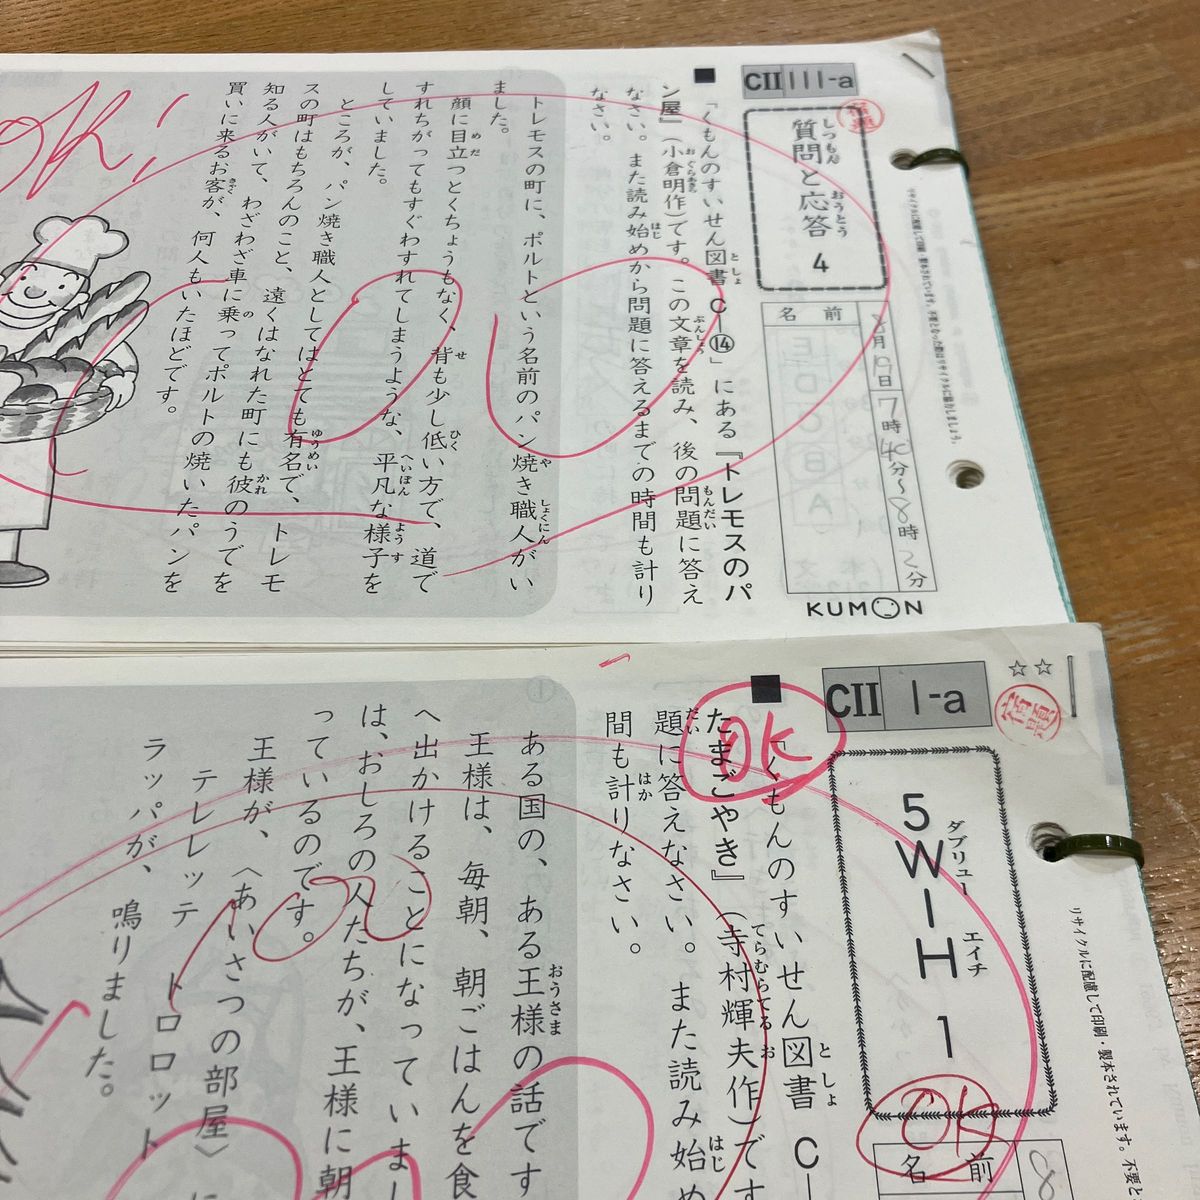 CII III-a
質問と応答 4
しつもん おうとう
名前
8月9日 7時40分〜8時2分
KUMON
リサイクルに配慮して印刷・製本されています。不要となった際はリサイクルに協力しましょう。
■「くもんのすいせん図書 C-⑭」にある『トレモスのパ
ン屋』(小倉明作)です。この文章を読み、後の問題に答え
なさい。また読み始めから問題に答えるまでの時間も計り
なさい。
トレモスの町に、ポルトという名前のパン焼き職人がい
ました。
顔に目立つとくちょうもなく、背も少し低い方で、道で
すれちがってもすぐわすれてしまうような、平凡な様子を
していました。
ところが、パン焼き職人としてはとても有名で、トレモ
スの町はもちろんのこと、遠くはなれた町にも彼のうでを
知る人がいて、わざわざ車に乗ってポルトの焼いたパンを
買いに来るお客が、何人もいたほどです。
OK!
CII I-a
☆☆
5W1H 1
ダブリュー エイチ
OK
名前
8
リサイクルに配慮して印刷・製本されています。不要と
■「くもんのすいせん図書 C-
たまごやき』(寺村輝夫作)です
題に答えなさい。また読み始め
間も計りなさい。
OK
ある国の、ある王様の話です
王様は、毎朝、朝ごはんを食
へ出かけることになっていま
は、おしろの人たちが、王様に朝
っているのです。
王様が、〈あいさつの部屋〉に
テレレッテ トロロット
ラッパが、鳴りました。